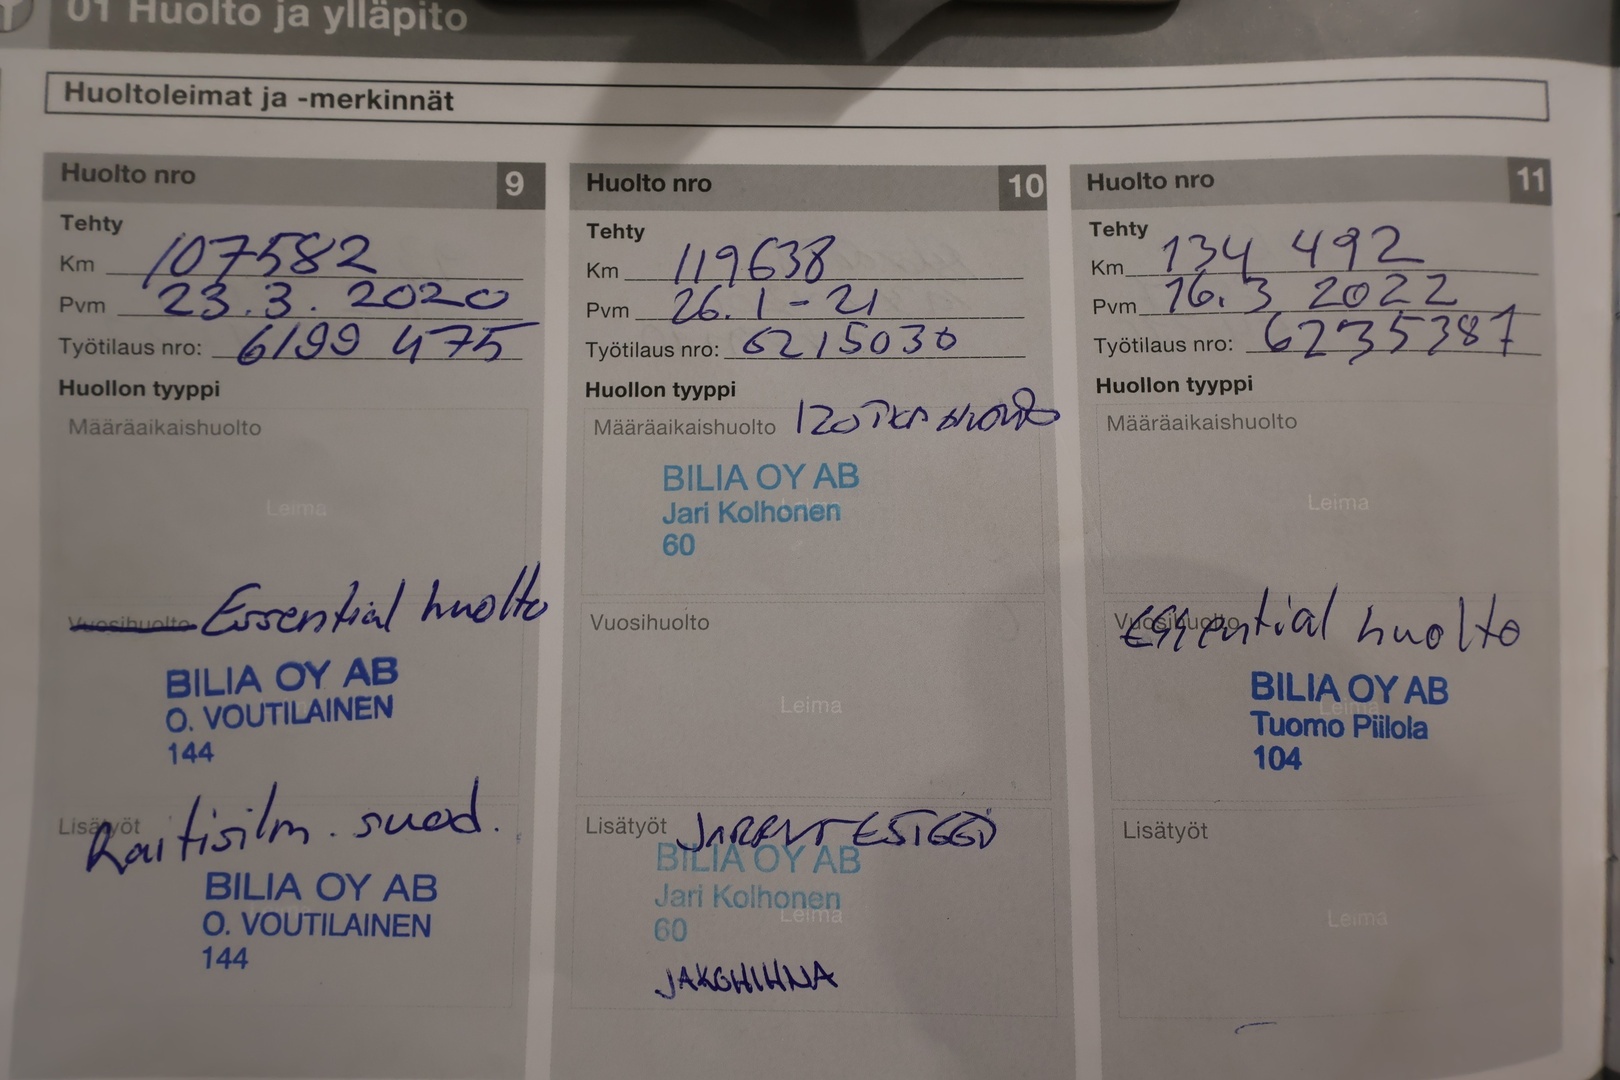 01 Huolto ja ylläpito
Huoltoleimat ja -merkinnät
Huolto nro 9
Tehty
Km 107582
Pvm 23.3. 2020
Työtilaus nro: 6199 475
Huollon tyyppi
Määräaikaishuolto
Leima
Vuosihuolto Essential huolto
BILIA OY AB
O. VOUTILAINEN
144
Lisätyöt Raitisilm. suod.
BILIA OY AB
O. VOUTILAINEN
144
Huolto nro 10
Tehty
Km 119638
Pvm 26.1-21
Työtilaus nro: 6215030
Huollon tyyppi
Määräaikaishuolto
BILIA OY AB
Jari Kolhonen
60
Vuosihuolto
Leima
Lisätyöt
BILIA OY AB
Jari Kolhonen
Leima
60
JAKOHIHNA
Huolto nro 11
Tehty
Km 134 492
Pvm 16.3 2022
Työtilaus nro: 6235387
Huollon tyyppi
Määräaikaishuolto
Leima
Vuosihuolto
Essential huolto
BILIA OY AB
Leima
Tuomo Piilola
104
Lisätyöt
Leima